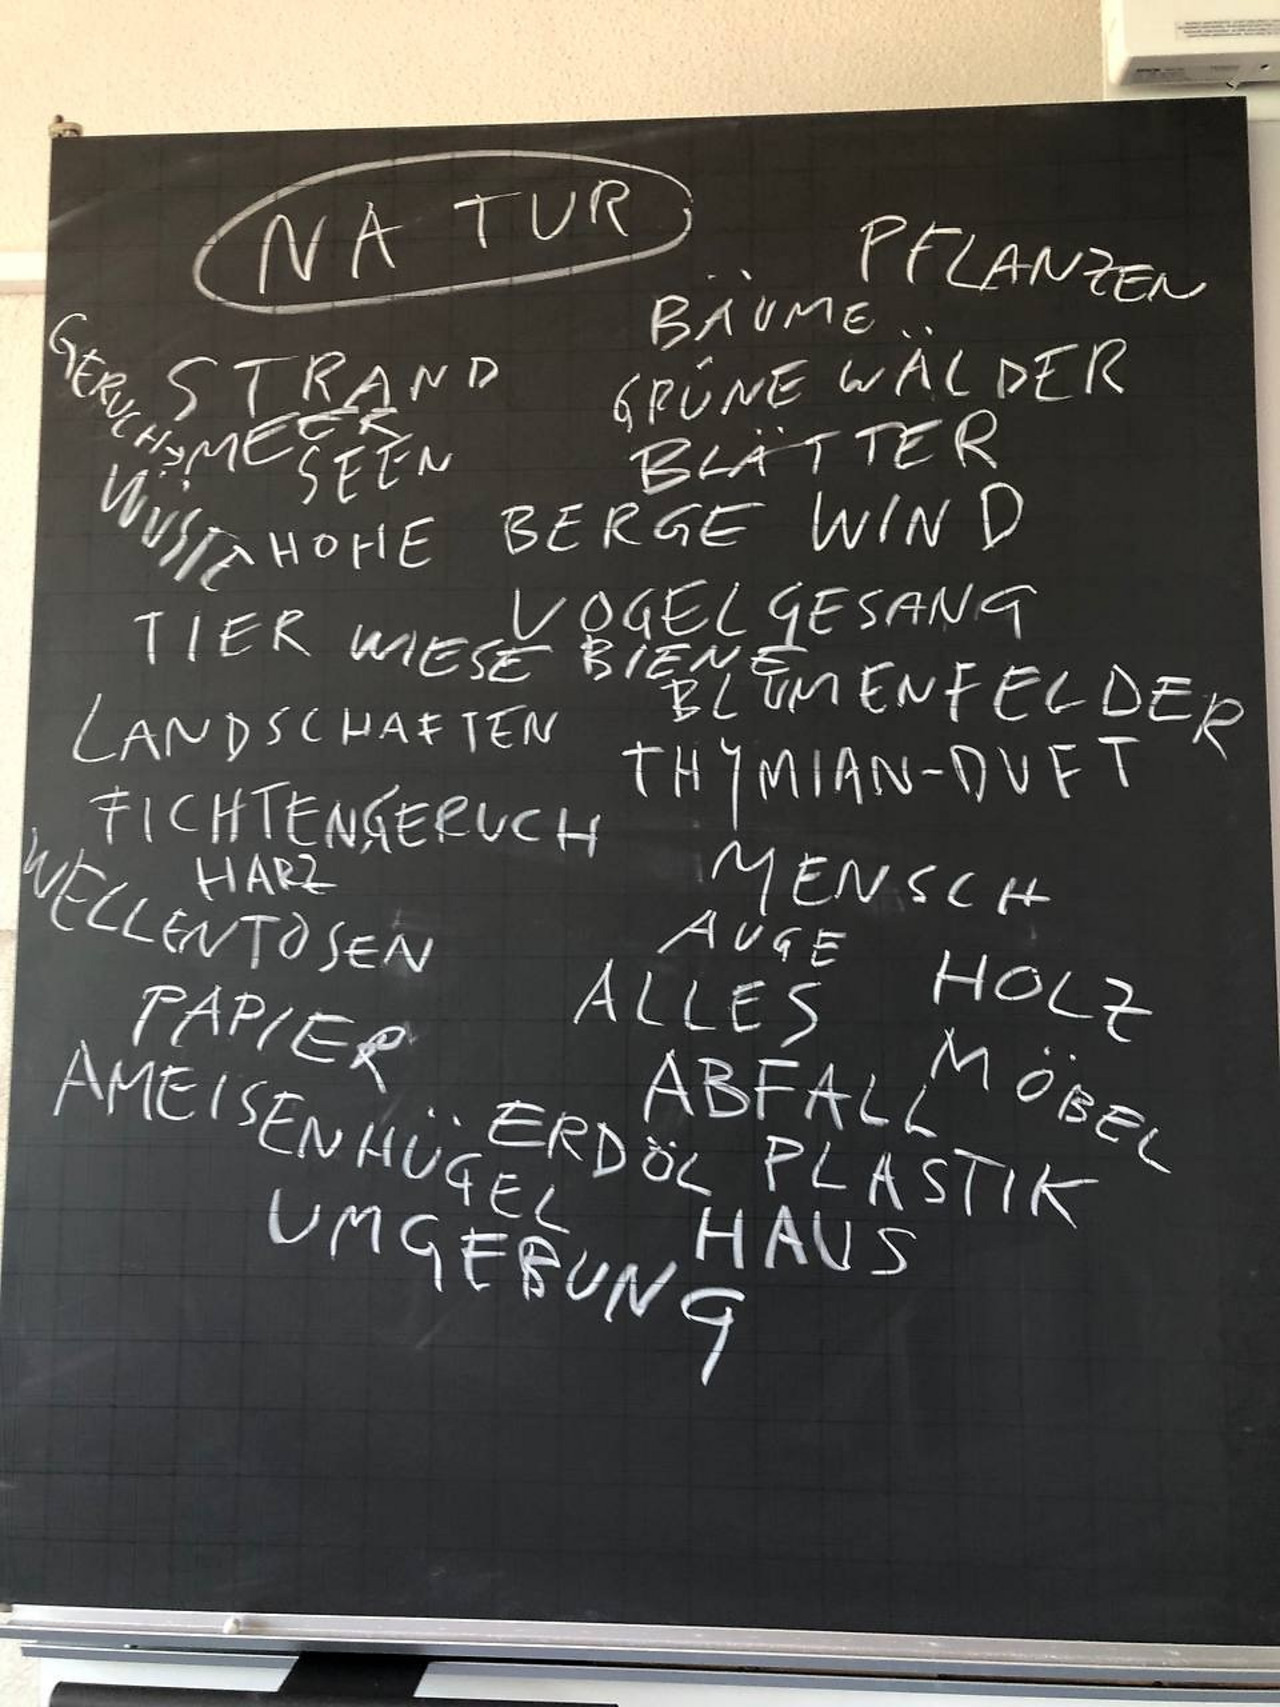 NATUR
PFLANZEN
BÄUME
GERUCH
STRAND
GRÜNE WÄLDER
MEER
BLÄTTER
SEEN
WÜSTE
HOHE BERGE WIND
VOGELGESANG
TIER WIESE BIENE
BLUMENFELDER
LANDSCHAFTEN
THYMIAN-DUFT
FICHTENGERUCH
HARZ
MENSCH
WELLENTOSEN
AUGE
HOLZ
ALLES
PAPIER
MÖBEL
ABFALL
AMEISENHÜGEL
ERDÖL PLASTIK
HAUS
UMGEBUNG